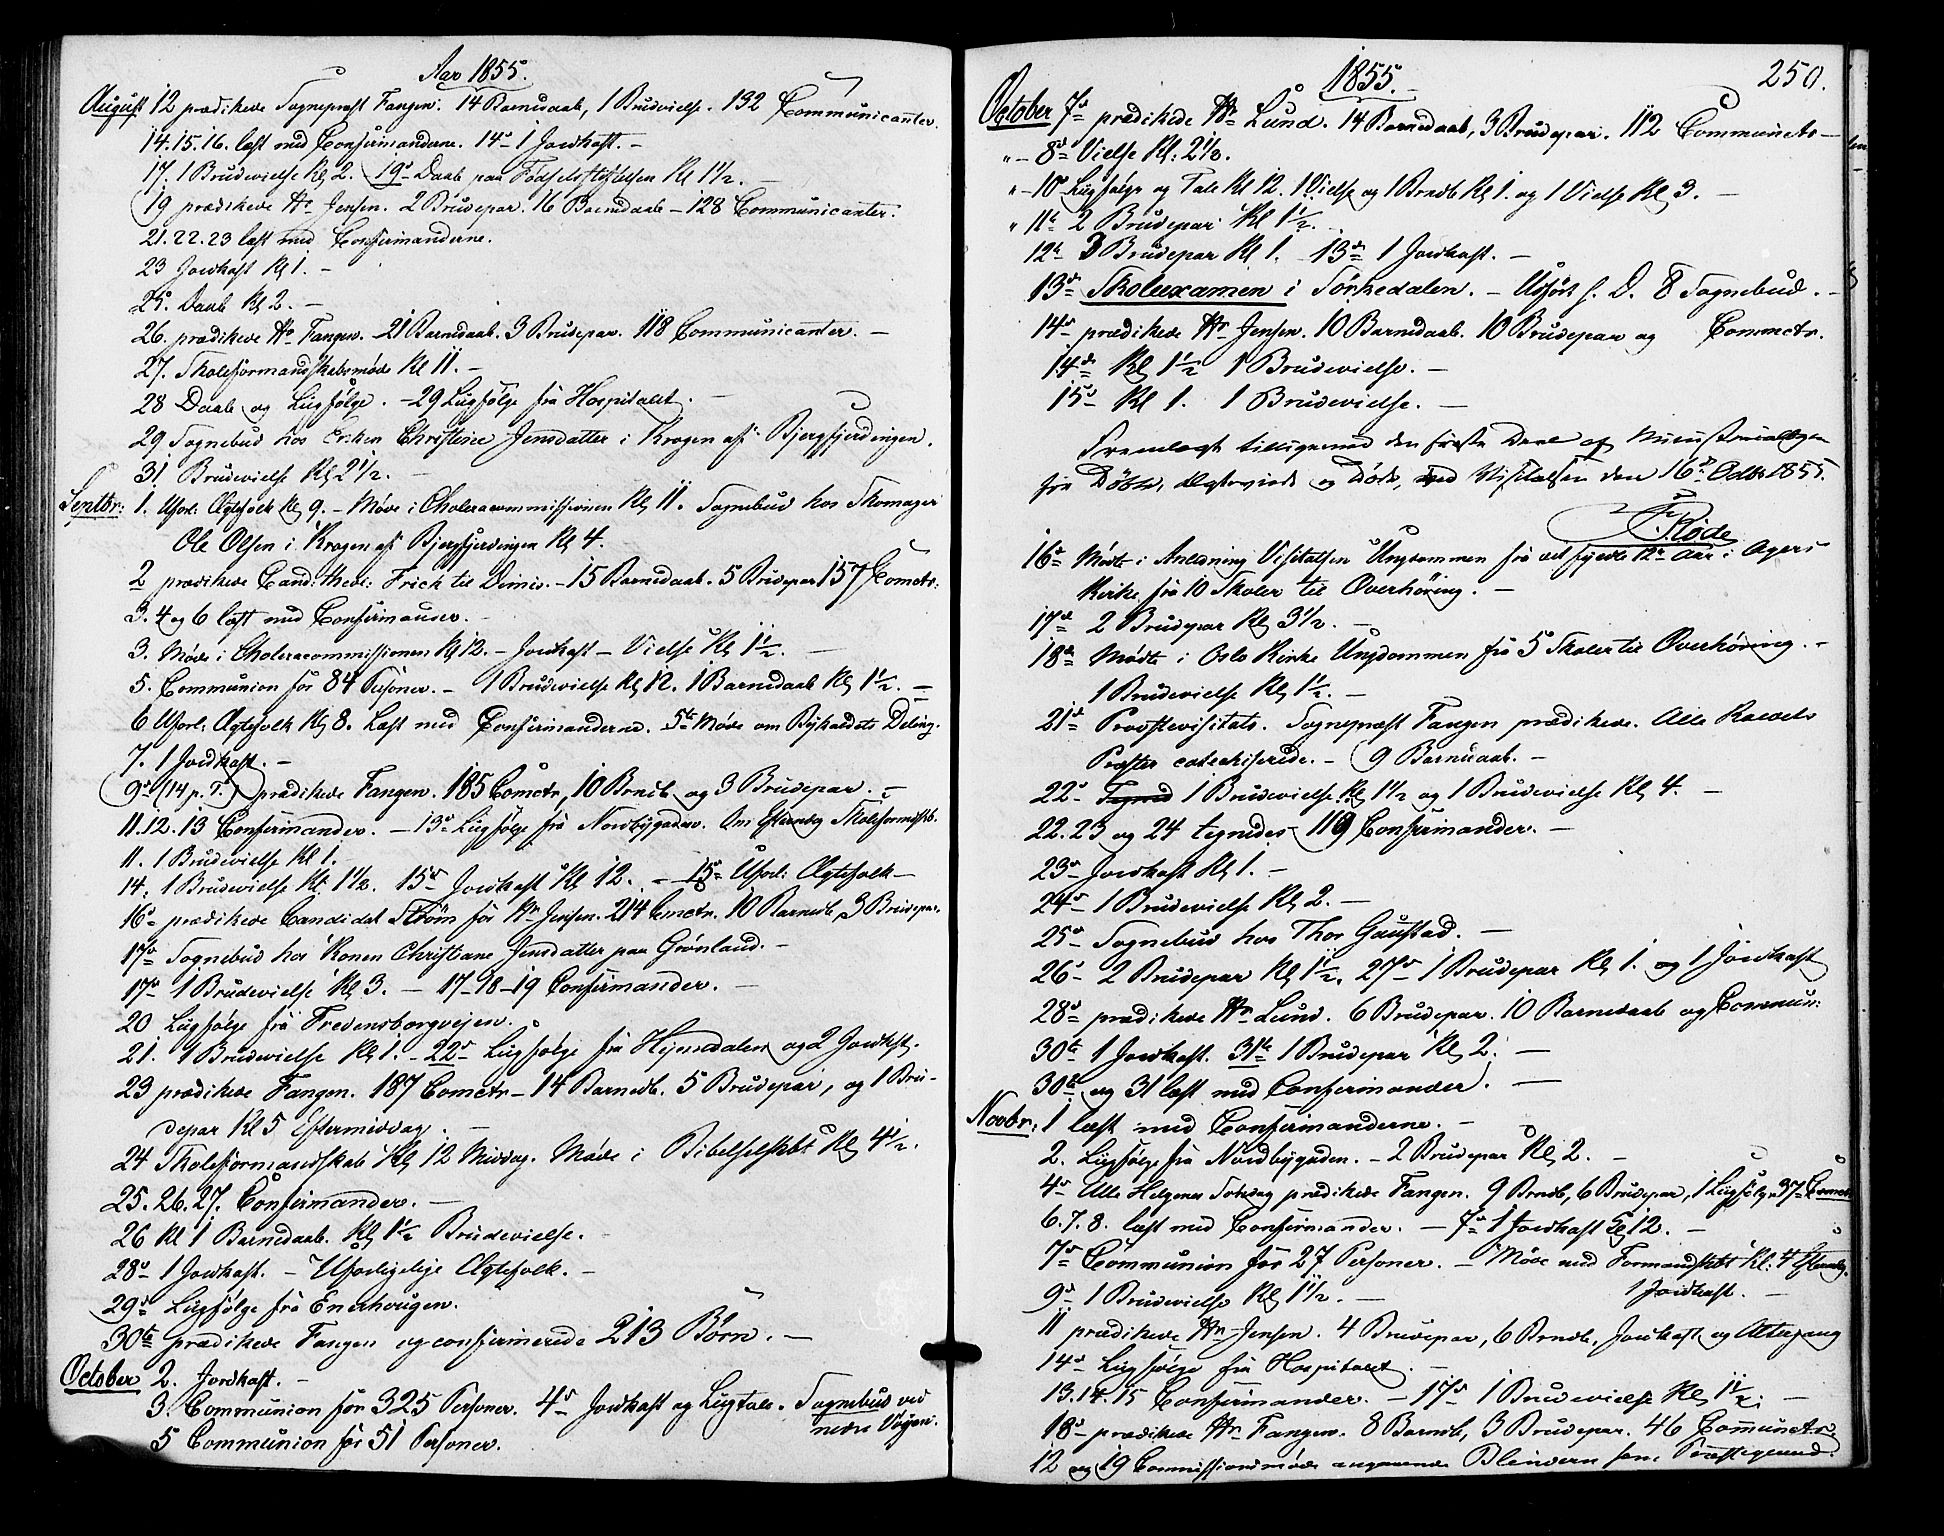 Aar 1855.
August 12 prædikede Sognepræst Fangen. 14 Barnedaab, 1 Brudevielse. 132 Communicanter.
14. 15. 16. læst med Confirmanderne. 14de 1 Jordkast. —
17. 1 Brudevielse Kl 2. 19de Daab paa Fødselsstiftelsen Kl 1½. —
19 prædikede Hr Jensen. 2 Brudepar. 16 Barnedaab — 128 Communicanter.
21. 22. 23 læst med Confirmanderne.
23 Jordkast Kl 1. —
25. Daab Kl 2. —
26. prædikede Hr Fangen. 21 Barnedaab. 3 Brudepar. 118 Communicanter. —
27. Skoleformandskabsmøde Kl 11. —
28 Daab og Liigfølge. — 29 Liigfølge fra Hospitalet. —
29 Sognebud hos Enken Christine Jensdatter i Krogen af Bjergfjerdingen.
31 Brudevielse Kl 2½. —
Septbr: 1. Uforl. Ægtefolk Kl 9. — Møde i Choleracommissionen Kl 11. Sognebud hos Skomager
Ole Olsen i Krogen af Bjergfjerdingen Kl 4.
2 prædikede Cand: theol: Frick til Dimis. — 15 Barnedaab. 5 Brudepar 157 Comctr:
3. 4 og 6 læst med Confirmander. —
3. Møde i Choleracommissionen Kl 12. — Jordkast — Vielse Kl 1½. —
5. Communion for 84 Personer. — 1 Brudevielse Kl 12. 1 Barnedaab Kl 1½. —
6 Uforl: Ægtefolk Kl 8. Læst med Confirmanderne. 5te Møde om Byskaldets Deling.
7. 1 Jordkast. —
9de (14 p. T.) prædikede Fangen. 185 Comctr, 10 Brndb. og 3 Brudepar. —
11. 12. 13 Confirmander. — 13de Liigfølge fra Nordbygaden. Om Efterm̄dag Skoleformdskb.
11. 1 Brudevielse Kl 1.
14. 1 Brudevielse Kl 1½. 15de Jordkast Kl 12. — 15de Uforl: Ægtefolk —
16de prædikede Candidat Strøm for Hr Jensen. 214 Cmctr. 10 Barnedb. 3 Brudepar.
17de Sognebud hos Konen Christiane Jensdatter paa Grønland. —
17de 1 Brudevielse Kl 3. — 17–18–19 Confirmander. —
20 Liigfølge fra Fredensborgveien.
21. 1 Brudevielse Kl 1. — 22de Liigfølge fra Hejmdalen og 2 Jordkst.
23 prædikede Fangen. 187 Comctr — 14 Barnedb. 5 Brudepar, og 1 Bru-
depar Kl 5 Eftermiddag. —
24 Skoleformandskab Kl 12 Middag. Møde i Bibelselskbt Kl 4½.
25. 26. 27. Confirmander. —
26 Kl 1 Barnedaab. Kl 1½ Brudevielse.
28de 1 Jordkast. — Uforligelige Ægtefolk. —
29de Liigfølge fra Enerhougen.
30te prædikede Fangen og confirmerede 213 Børn. —
October 2. Jordkast. —
3. Communion for 325 Personer. 4de Jordkast og Liigtale. Sognebud ved
nedre Vognm.
5 Communion for 51 Personer.
1855. —
250.
October 7de prædikede Hr Lund. 14 Barnedaab, 3 Brudepar. 112 Communctr —
" — 8de Vielse Kl: 2½.
" — 10de Liigfølge og Tale Kl 12. 1 Vielse og 1 Brndb Kl 1. og 1 Vielse Kl 3. —
" 11te 2 Brudepar Kl 1½.
12te 3 Brudepar Kl 1. 13de 1 Jordkast. —
13de Skoleexamen i Sørkedalen. — Udført s. D. 8 Sognebud. —
14de prædikede Hr Jensen. 10 Barnedaab. 10 Brudepar og Comctr.
14de Kl 1½ 1 Brudevielse. —
15de Kl 1. 1 Brudevielse. —
Fremlagt tilligemed den første Deel af Ministerialbogen
for Døbte, Ægteviede og Døde, ved Visitatsen den 16de Octbr 1855.
Røde
16de Mødte i Anledning Visitatsen Ungdommen fra det fyldte 12te Aar i Agers
Kirke fra 10 Skoler til Overhøring. —
17de 2 Brudepar Kl 3½. —
18de Mødte i Oslo Kirke Ungdommen fra 5 Skoler til Overhøring. —
1 Brudevielse Kl 1½. —
21de Provstevisitats. Sognepræst Fangen prædikede. Alle Kaldets
Præster catechiserede. — 9 Barnedaab. —
22de Tegned 1 Brudevielse Kl 1½ og 1 Brudevielse Kl 4. —
22. 23 og 24 tegnedes 119 Confirmander. —
23de Jordkast Kl 1. —
24de 1 Brudevielse Kl 2. —
25de Sognebud hos Thor Gaustad. —
26de 2 Brudepar Kl 1½. 27de 1 Brudepar Kl 1. og 1 Jordkast
28de prædikede Hr Lund. 6 Brudepar. 10 Barnedaab og Commun:
30te 1 Jordkast. 31te 1 Brudepar Kl 2. —
30te og 31 læst med Confirmander. —
Novbr: 1 læst med Confirmanderne. —
2. Liigfølge fra Nordbygaden. — 2 Brudepar Kl 2. —
4de Alle Helgenes Søndag prædikede Fangen. 9 Brndb, 6 Brudepar, 1 Liigfølge 37 Comct
6. 7. 8. læst med Confirmander. — 7de 1 Jordkast Kl 12. —
7de Communion for 27 Personer. — Møde med Formandskbt Kl: 4 Efterm̄dg.
9de 1 Brudevielse Kl 1½. — 1 Jordkast. —
11 prædikede Hr Jensen. 4 Brudepar, 6 Brndb, Jordkast og Altergang
14de Liigfølge fra Hospitalet. —
13. 14. 15 Confirmander. — 17de 1 Brudevielse Kl 1½. —
18de prædikede Hr Fangen. 8 Barndb, 3 Brudepar. 46 Comunctr.
12 og 19 Commissionsmøde angaaende Blindern som Præstegaard.